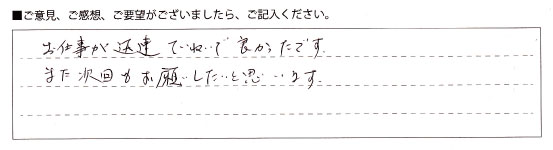 ■ご意見、ご感想、ご要望がございましたら、ご記入ください。
お仕事が迅速でていねいで良かったです。
また次回もお願いしたいと思います。